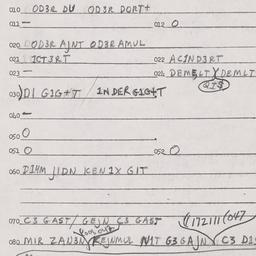 010 OD3R DU OD3R DORT+
011 — 012 O
020 OD3R AJNT OD3R AMUL
021 ICT3RT 022 ACIND3RT
023 — 024 DEMELT Y DEMLT
030 DI GIG+T IN DER GIG+T
040 —
050 O
051 O 052 O
060 DIHM JIDN KEN1X GIT
070 C3 GAST / GEIN C3 GAST
080 MIR ZAN3N REINMUL NIT G3 GAJN C3